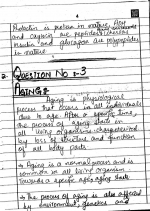 Prolactin is protein in nature, ADH
and oxytocin are peptides whereas
insulin and glucagon are polypeptides
in nature
2. QUESTION NO :- 3
AGING:-
Aging is physiological
process that occurs in all individuals
due to age. After a specific time,
the process of aging occurs in
all living organisms characterized
by loss of structure and function
of all body parts
→ Aging is a normal process and is
common in all living organism
towards a specific age
→ The process of aging is also affected
by environment, genetics and